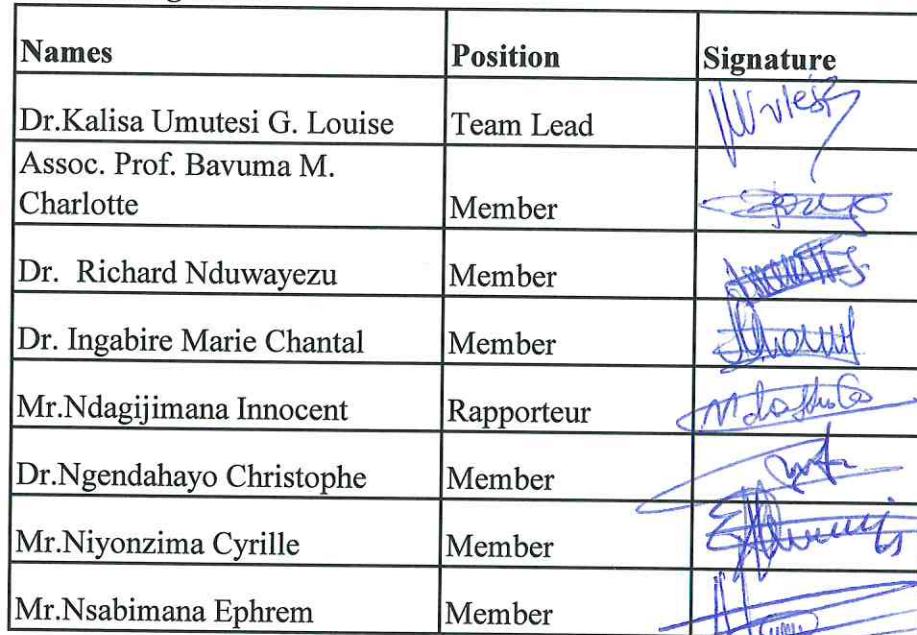 Names Position Signature
Dr.Kalisa Umutesi G. Louise Team Lead
Assoc. Prof. Bavuma M.
Charlotte Member
Dr. Richard Nduwayezu Member
Dr. Ingabire Marie Chantal Member
Mr.Ndagijimana Innocent Rapporteur
Dr.Ngendahayo Christophe Member
Mr.Niyonzima Cyrille Member
Mr.Nsabimana Ephrem Member